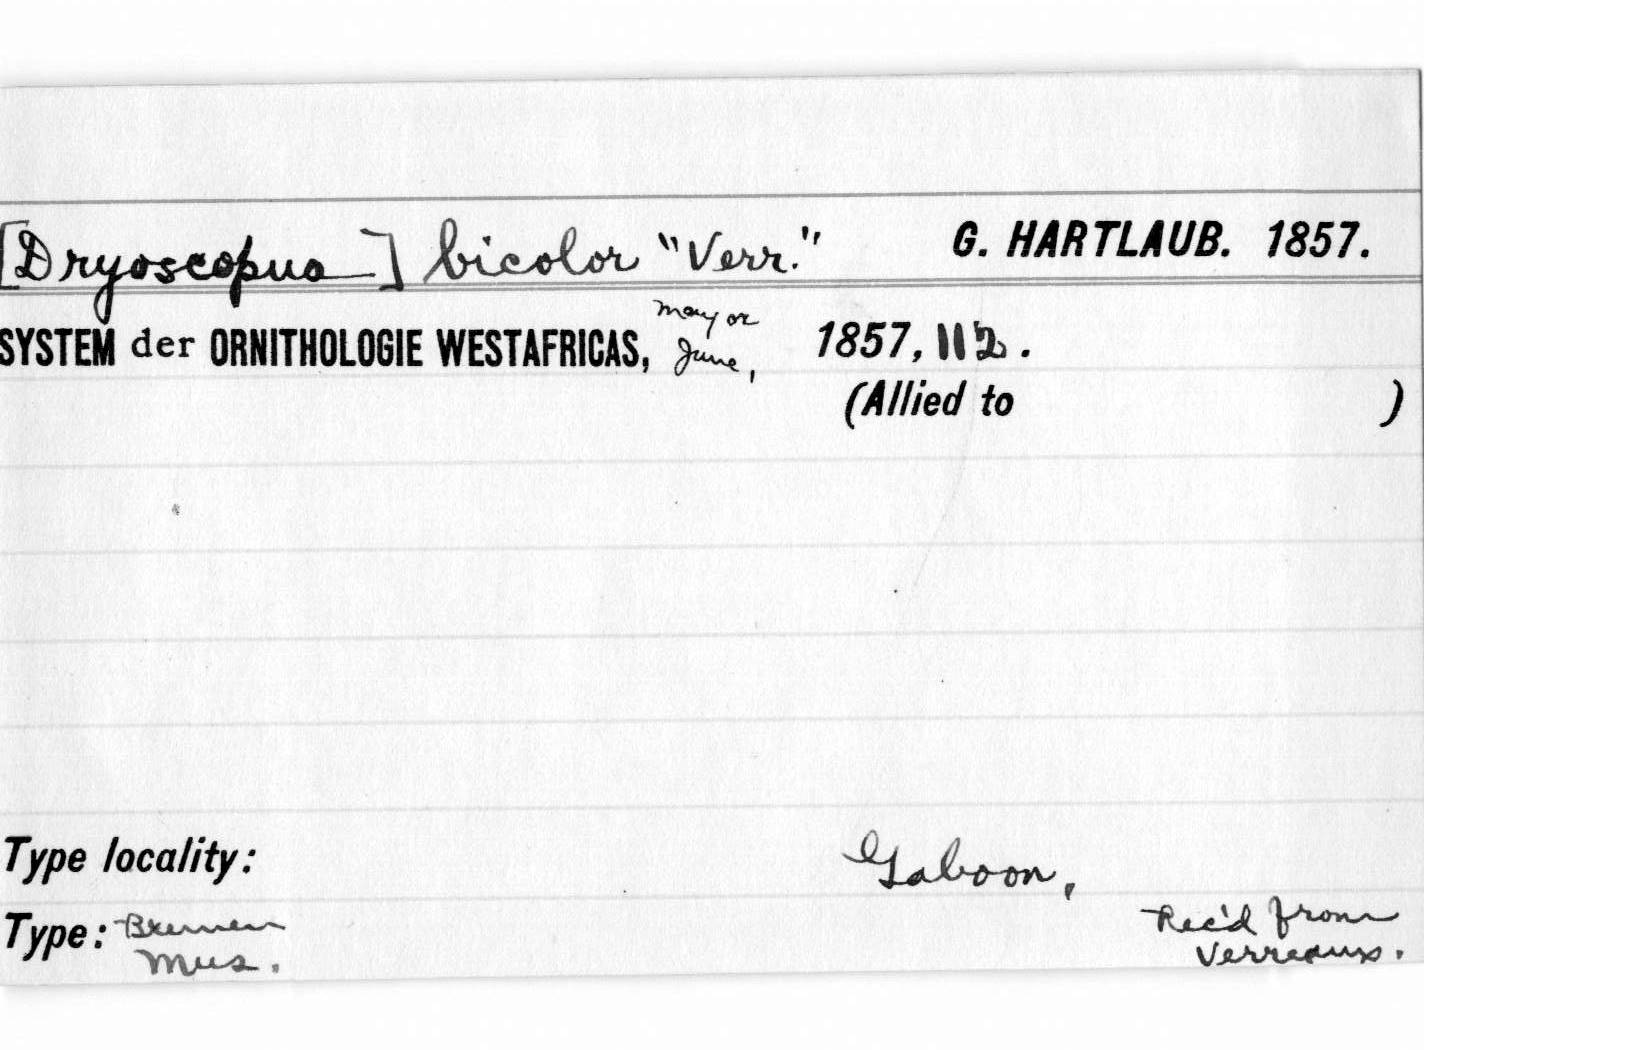 [Dryoscopus] bicolor "Verr." G. HARTLAUB. 1857.
SYSTEM der ORNITHOLOGIE WESTAFRICAS, May or June, 1857, 112.
(Allied to )
Type locality: Gaboon,
Type: Bremen Mus. Rec'd from Verreaux.